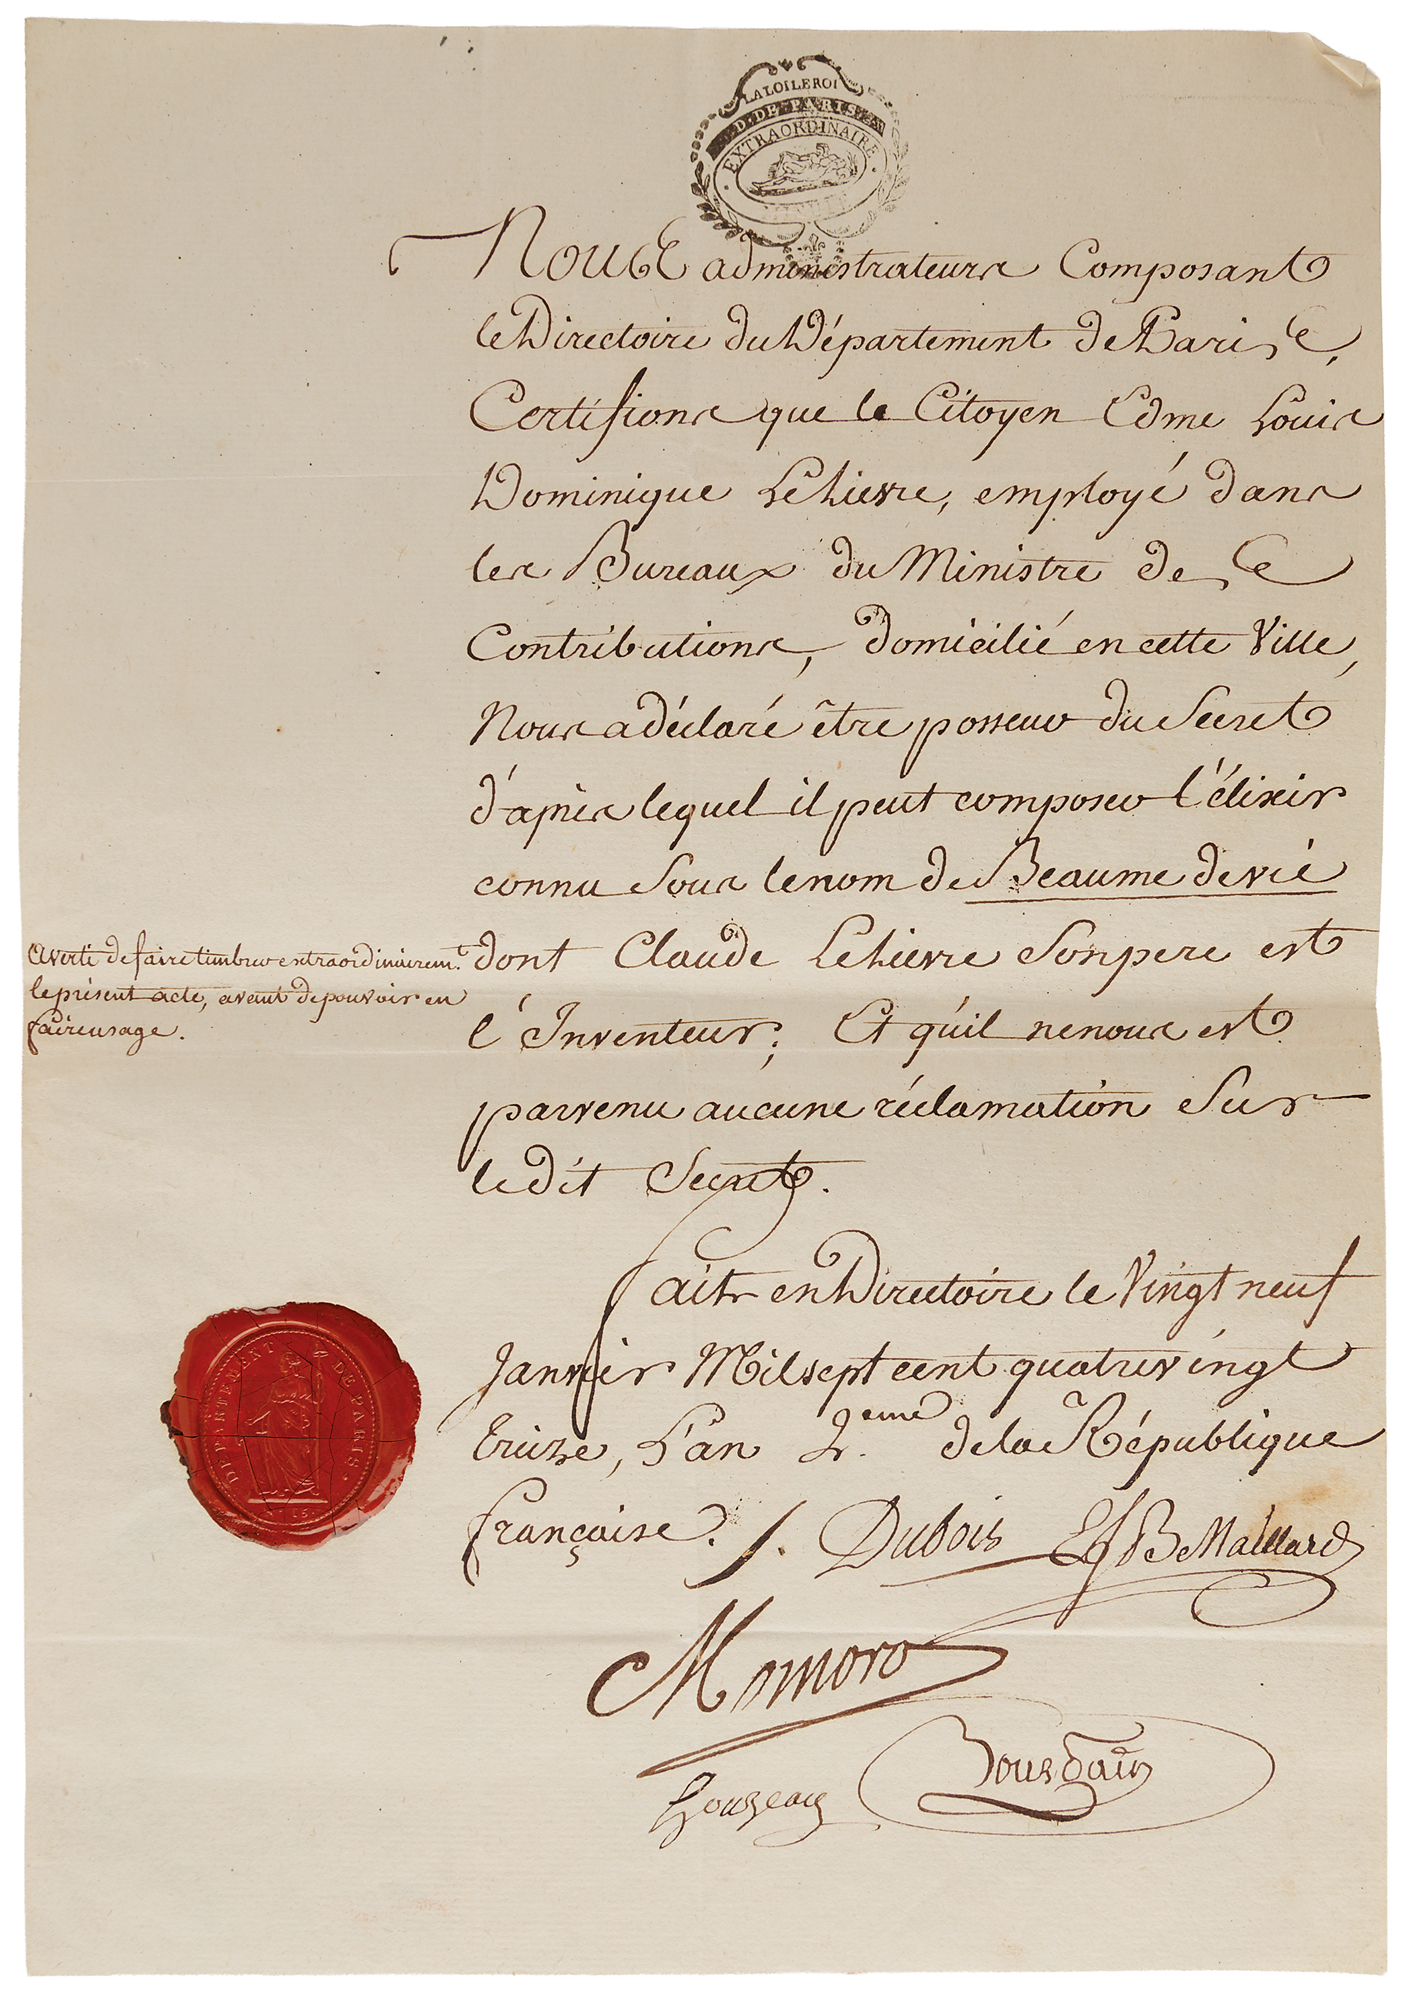 LA LOI LE ROI
D. DE PARIS
EXTRAORDINAIRE
Nous administrateurs Composant
le Directoire du Département de Paris,
Certifions que le Citoyen Edme Louis
Dominique Lelievre, employé dans
les Bureaux du Ministre des
Contributions, domicilié en cette Ville,
Nous a déclaré être posseur du Secret
d'après lequel il peut composer l'élixir
connu Sous le nom de Beaume de vie
dont Claude Lelievre Son pere est
l'Inventeur; Et qu'il ne nous est
parvenu aucune réclamation Sur
le dit Secret.
averti de faire timbrer extraordinairem.t
le présent acte, avant de pouvoir en
faire usage.
fait en Directoire le Vingt neuf
Janvier Mil sept cent quatre vingt
treize, L'an 2.eme de la République
française.
DEPARTEMENT DE PARIS
Dubois
Maillard
Momoro
Houzeau
Bourdain